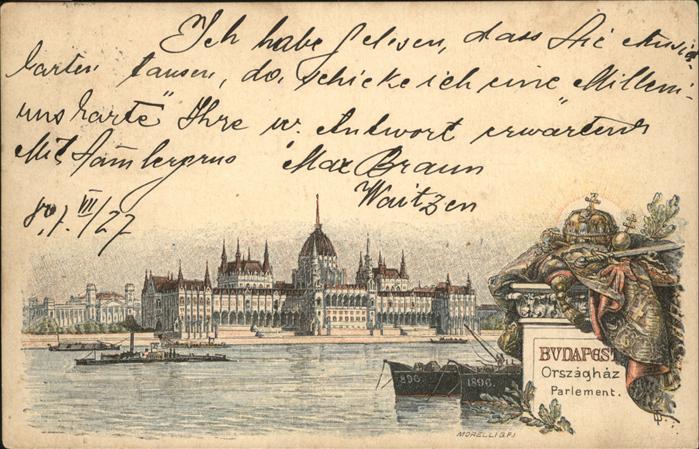 Ich habe gelesen, dass Sie Ansich
karten tausen, da schicke ich eine „Milleni-
umskarte" Ihre w. Antwort erwartend
Mit Samlergrus Max Braun
Waitzen
VII/27
896.
1896.
BUDAPEST
Országház
Parlement.
MORELLI G.F.I